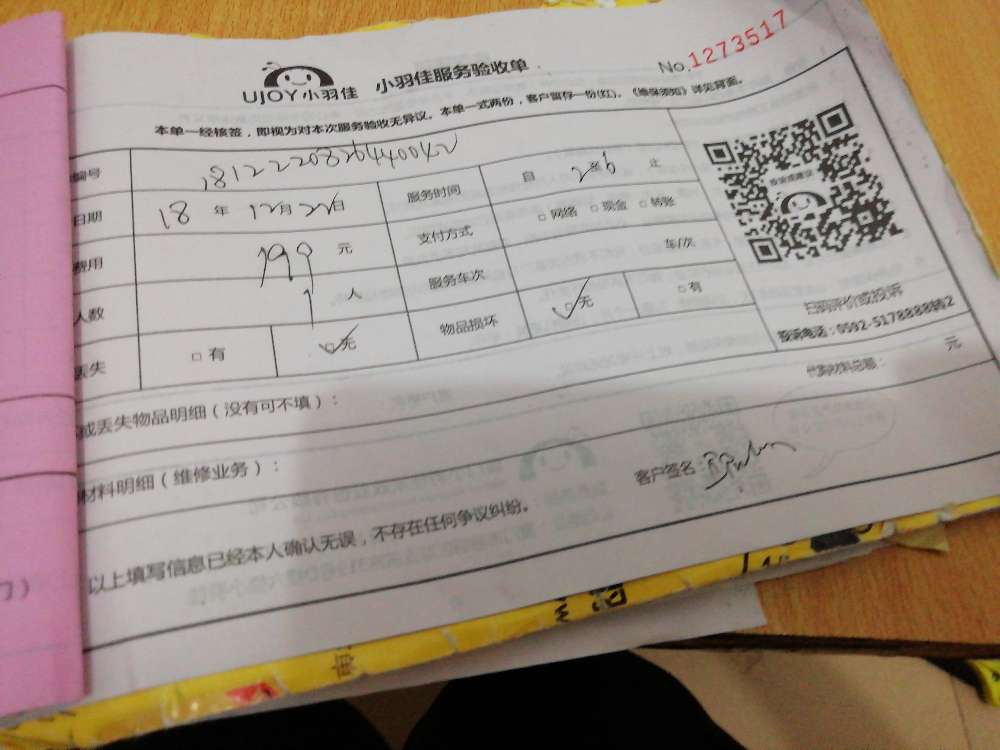 UJOY小羽佳 小羽佳服务验收单 No.1273517
本单一经核签,即视为对本次服务验收无异议。本单一式两份,客户留存一份(红)。《维保须知》详见背面。
编号
日期 18 年 12月 22日 服务时间 自 2 至 6 止
费用 199 元 支付方式 □网络 □现金 □转账
人数 1 人 服务车次 车/次
丢失 □有 □无 物品损坏 □无 □有
投诉或建议
扫码评价或投诉
投诉电话:0592-5178888转2
或丢失物品明细(没有可不填): 代购材料总额: 元
材料明细(维修业务):
客户签名:
以上填写信息已经本人确认无误,不存在任何争议纠纷。